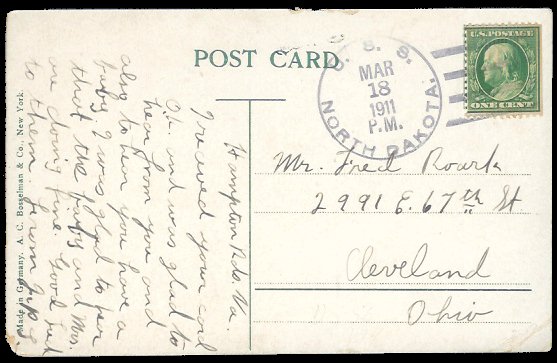 POST CARD
U. S. S.
MAR
18
1911
P.M.
NORTH DAKOTA.
U.S. POSTAGE
ONE CENT
Hampton Rds. Va.
I received your card
O.K. and was glad to
hear from you and
also to hear you have a
baby I was glad to hear
that the baby and Mrs.
are doing fine Good luck
to them. from
Mr. Fred Roark
2991 E. 67th St
Cleveland
Ohio
Made in Germany, A. C. Bosselman & Co., New York